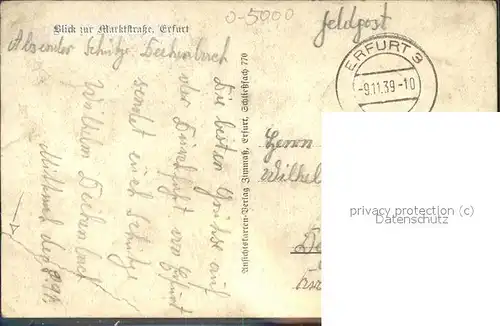 Blick zur Marktstraße, Erfurt
0-5000
Feldpost
Absender Schütze Dechenbach
ERFURT 3
-9.11.39-10
Die besten Grüße auf
der Durchfahrt von Erfurt
sendet euch Schütze
Wilhelm Dechenbach
Ansichtskarten-Verlag Zimmaß, Erfurt, Schließfach 770
Herrn
Wilhel
privacy protection (c)
Disclaimer